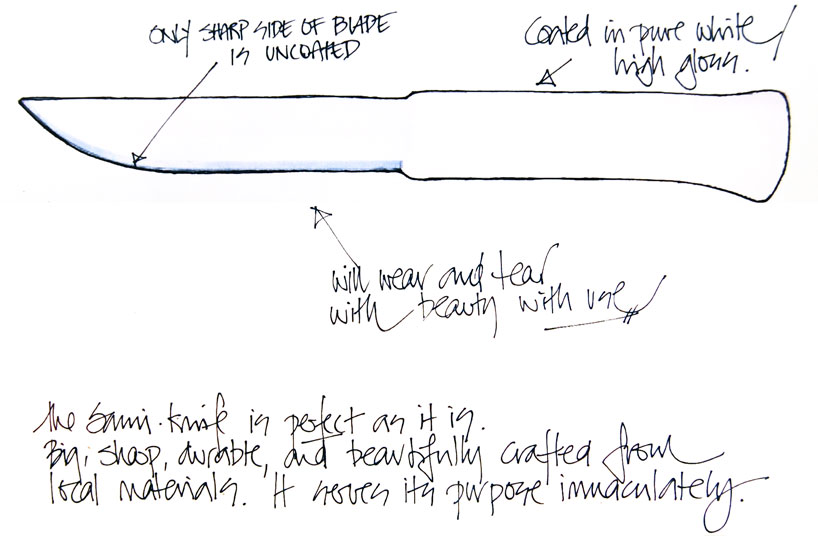 ONLY SHARP SIDE OF BLADE
IS UNCOATED
Coated in pure white
high gloss.
will wear and tear
with beauty with use
the Sami-knife is perfect as it is.
Big, sharp, durable, and beautifully crafted from
local materials. It serves its purpose immaculately.